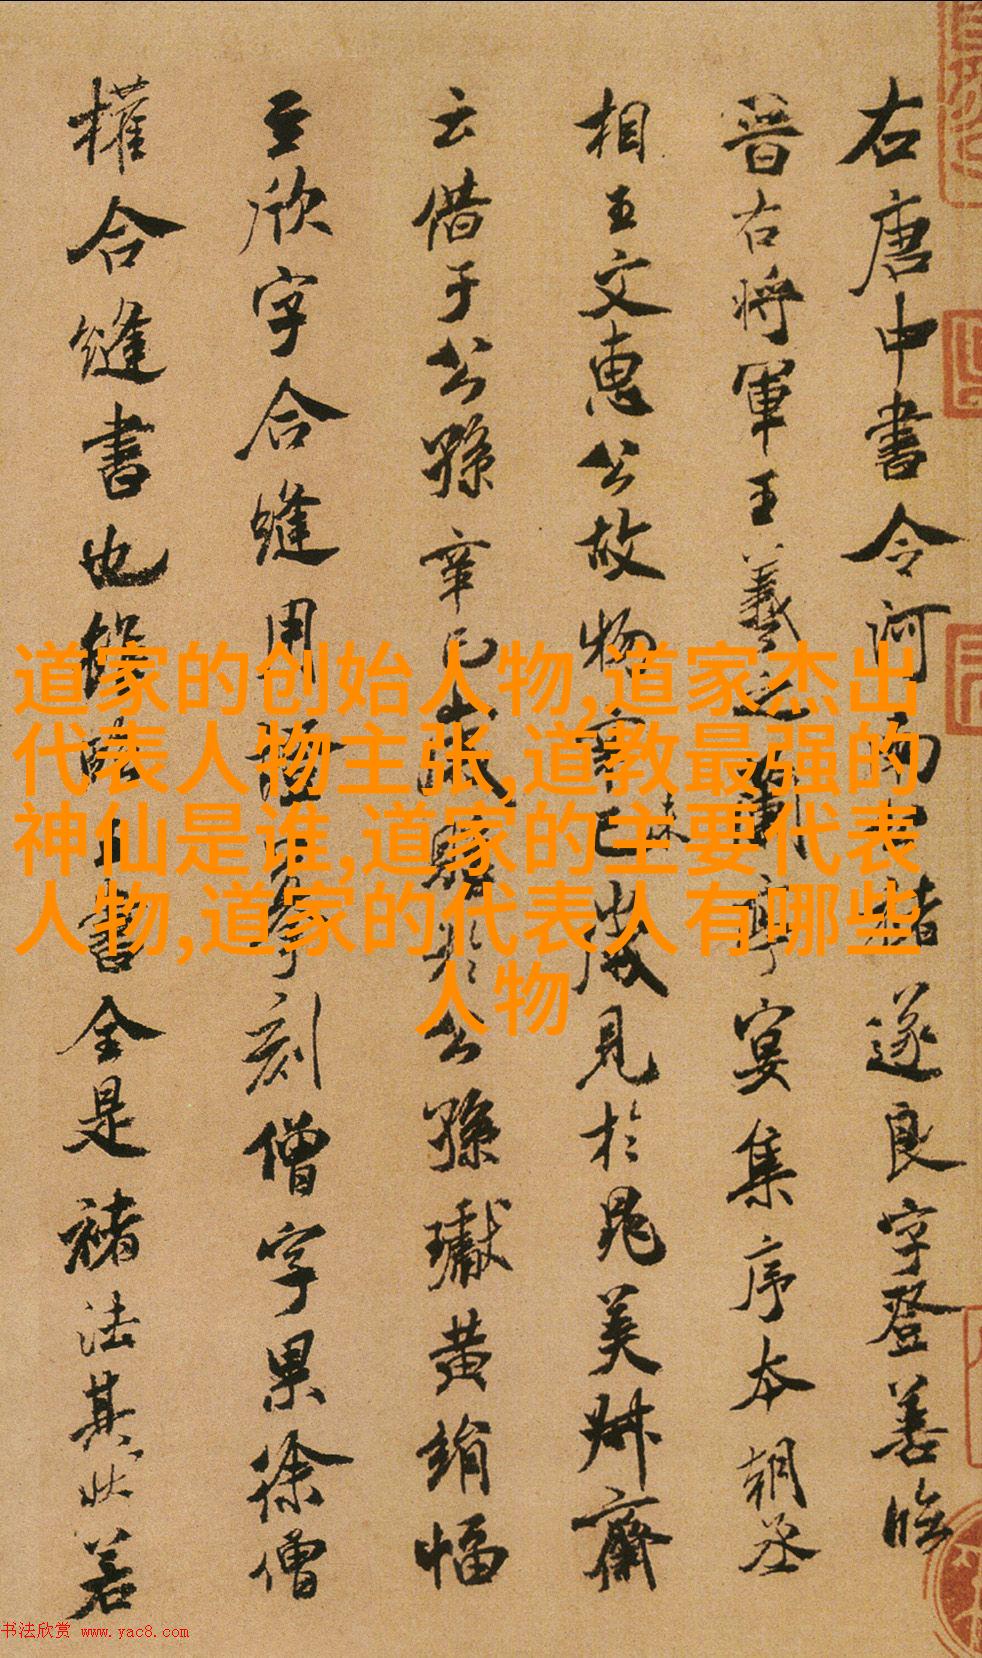 右唐中書令河南公褚遂良字登善臨
晉右将軍王羲之蘭亭宴集序本朝丞
相王文惠公故物歲見於晁美叔齋
云借于公孫辛巳歲購公孫瓛黄絹幅
至欣字合縫用刻僧字果徐僧
權合縫書也雖臨王書全是褚法其状若
道家的创始人物,道家杰出
代表人物主张,道教最强的
神仙是谁,道家的主要代表
人物,道家的代表人有哪些
人物
书法欣赏 www.yac8.com